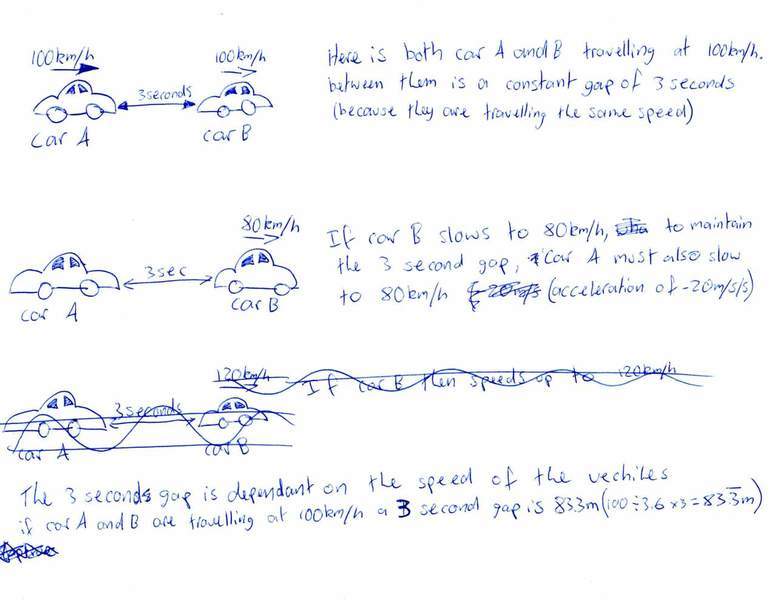 100km/h
100km/h
3 seconds
car A
car B
Here is both car A and B travelling at 100km/h.
between them is a constant gap of 3 seconds
(because they are travelling the same speed)
80km/h
3 sec
car A
car B
If car B slows to 80km/h, to maintain
the 3 second gap, car A must also slow
to 80km/h (acceleration of -20m/s/s)
120km/h
3 seconds
car A
car B
If car B then speeds up to 120km/h
The 3 seconds gap is dependant on the speed of the vechiles
if car A and B are travelling at 100km/h a 3 second gap is 83.3m (100 ÷ 3.6 x3 = 83.3̅m)